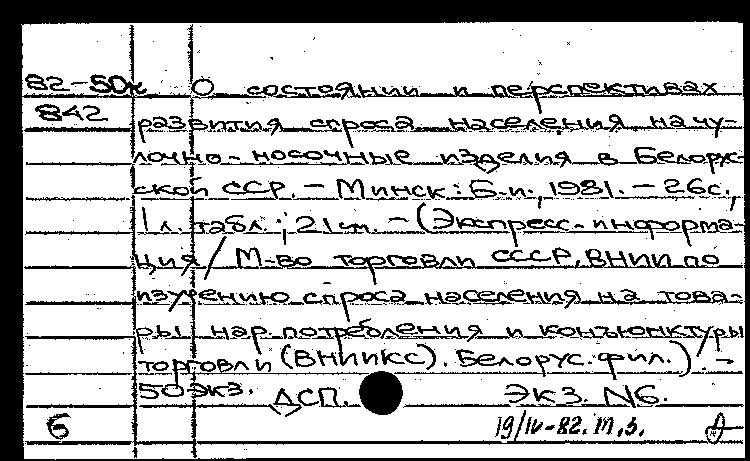 82-50к О состоянии и перспективах
842 развития спроса населения на чу-
лочно-носочные изделия в Белорус-
ской ССР. – Минск: Б.и., 1981. – 26с.,
1 л. табл.; 21 см. – (Экспресс-информа-
ция / М-во торговли СССР, ВНИИ по
изучению спроса населения на това-
ры нар. потребления и конъюнктуры
торговли (ВНИИКС). Белорус. фил.). –
50 экз. ДСП. Экз. N6.
Б 19/IV-82. М.З.